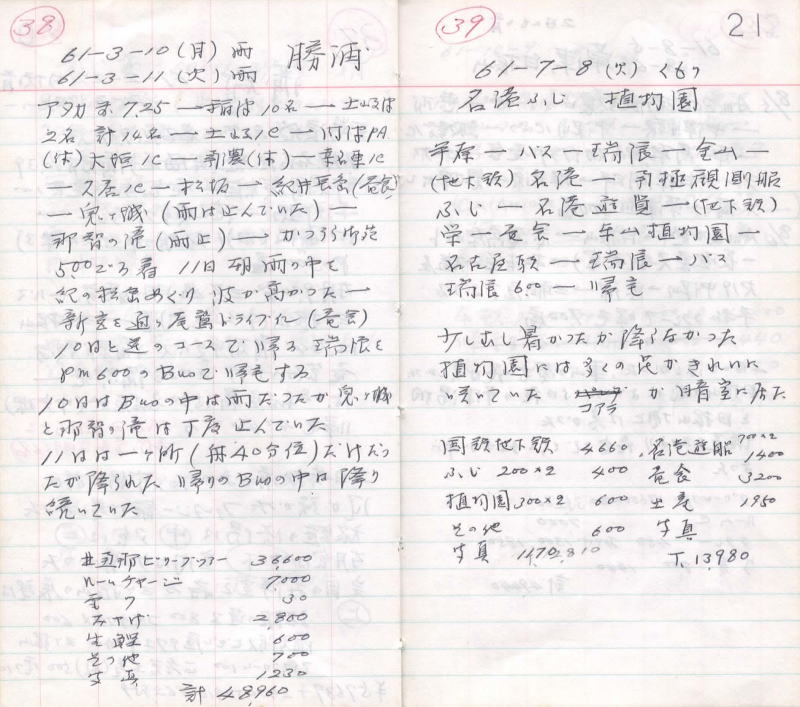 38
61-3-10(月)雨 勝浦
61-3-11(火)雨
7.25 → 10名 →
2名 計14名 → 土岐IC →
(休) 大垣IC → 南濃(休) → 桑名東IC
→ 久居IC → 松坂 → 紀伊長島(昼食)
→ 鬼ヶ城 (雨は止んでいた) →
那智の滝 (雨止) → かつうら御苑
500ごろ着 11日 朝 雨の中を
紀の松島めぐり 波が高かった →
新宮を通り尾鷲ドライブイン(昼食)
10日と逆のコースで帰る 瑞浪を
PM6.00のBusで帰宅する
10日はBusの中は雨だったが鬼ヶ城
と那智の滝は丁度止んでいた
11日は一ヶ所(舟40分位)だけだっ
たが降られた 帰りのBusの中は降り
続いていた
36,600
ルームチャージ 7,000
30
みやげ 2,800
600
その他 700
写真 1230
計 48,960
39
21
61-7-8(火)くもり
名港ふじ 植物園
平岩 → バス → 瑞浪 → 金山 →
(地下鉄) 名港 → 南極観測船
ふじ → 名港遊覧 → (地下鉄)
→ 昼食 → 東山植物園 →
名古屋駅 → 瑞浪 → バス
瑞浪 6.00 → 帰宅
少しむし暑かったが降らなかった
植物園には多くの花がきれいに
咲いていた コアラ が 居た
国鉄地下鉄 4660 名港遊船 700×2 1400
ふじ 200×2 400 昼食 3200
植物園300×2 600 土産 1950
その他 600 写真
写真 1170 T.13,980